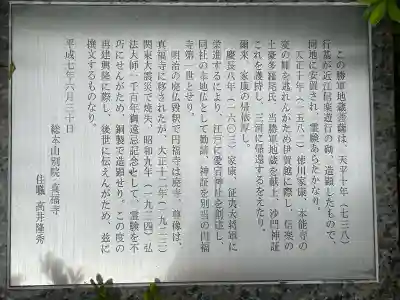 この勝軍地蔵菩薩は、天平十年（七三八）
行基が近江信楽遊行の砌、造顕したもので、
同地に安置され、霊験あらたかなり。
天正十年（一五八二）徳川家康、本能寺の
変の難を逃れんがため伊賀越に際し、信楽の
土豪多羅尾氏、当勝軍地蔵を献上、沙門神証
これを護持し、三河に帰還するをえたり。
爾来、家康の帰依厚し。
慶長八年（一六〇三）家康、征夷大将軍に
栄進するにより、江戸に愛宕神社を創建し、
同社の本地仏として勧請、神証を別当の円福
寺第一世とせり。
明治の廃仏毀釈で円福寺は廃寺、尊像は、
真福寺に移されたが、大正十二年（一九二三）
関東大震災で焼失、昭和九年（一九三四）弘
法大師一千百年御遠忌記念として、霊験を不
朽にせんがため、銅製で造顕せり。この度の
再建興隆に際し、後世に伝えんがため、並に
撰文するものなり。
平成七年六月三十日
総本山別院真福寺
住職 高井隆秀